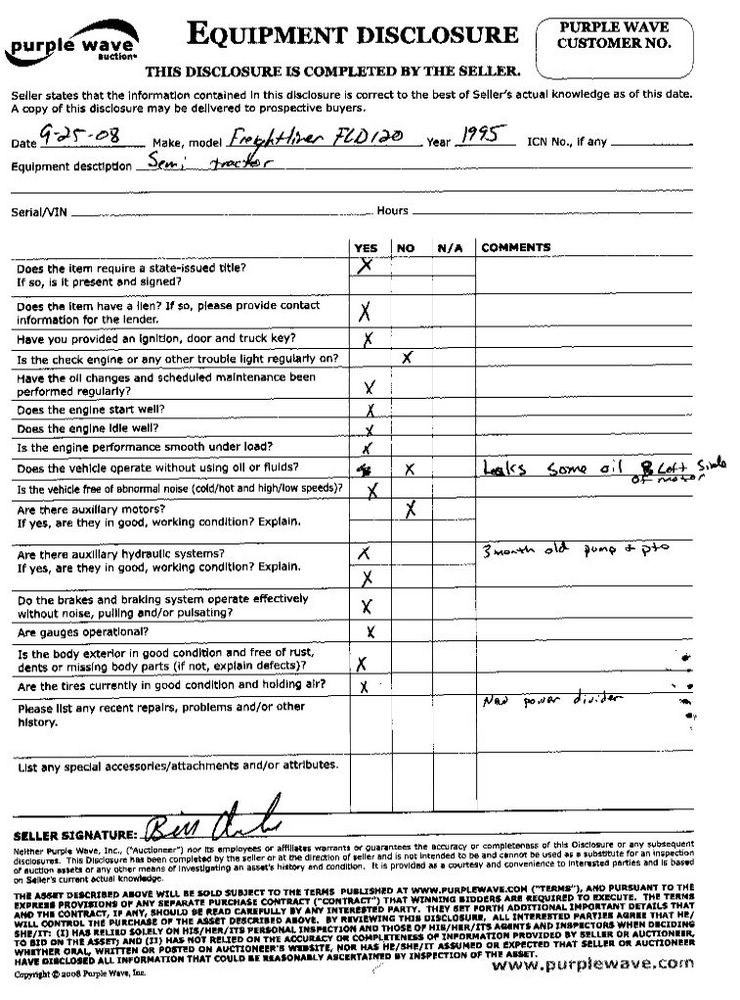 purple wave
auction
EQUIPMENT DISCLOSURE
PURPLE WAVE
CUSTOMER NO.
THIS DISCLOSURE IS COMPLETED BY THE SELLER.
Seller states that the information contained in this disclosure is correct to the best of Seller's actual knowledge as of this date.
A copy of this disclosure may be delivered to prospective buyers.
Date 9-25-08 Make, model Freightliner FLD120 Year 1995 ICN No., if any
Equipment description Semi tractor
Serial/VIN Hours
YES NO N/A COMMENTS
Does the item require a state-issued title? X
If so, is it present and signed?
Does the item have a lien? If so, please provide contact
information for the lender. X
Have you provided an ignition, door and truck key? X
Is the check engine or any other trouble light regularly on? X
Have the oil changes and scheduled maintenance been
performed regularly? X
Does the engine start well? X
Does the engine idle well? X
Is the engine performance smooth under load? X
Does the vehicle operate without using oil or fluids? X Leaks some oil Left Side
of motor
Is the vehicle free of abnormal noise (cold/hot and high/low speeds)? X
Are there auxiliary motors? X
If yes, are they in good, working condition? Explain.
Are there auxiliary hydraulic systems? X 3 month old pump + pto
If yes, are they in good, working condition? Explain. X
Do the brakes and braking system operate effectively
without noise, pulling and/or pulsating? X
Are gauges operational? X
Is the body exterior in good condition and free of rust,
dents or missing body parts (if not, explain defects)? X
Are the tires currently in good condition and holding air? X
Please list any recent repairs, problems and/or other New power divider
history.
List any special accessories/attachments and/or attributes.
SELLER SIGNATURE: Bill
Neither Purple Wave, Inc., ("Auctioneer") nor its employees or affiliates warrants or guarantees the accuracy or completeness of this Disclosure or any subsequent
disclosures. This Disclosure has been completed by the seller or at the direction of seller and is not intended to be and cannot be used as a substitute for an inspection
of auction assets or any other means of investigating an asset's history and condition. It is provided as a courtesy and convenience to interested parties and is based
on Seller's current actual knowledge.
THE ASSET DESCRIBED ABOVE WILL BE SOLD SUBJECT TO THE TERMS PUBLISHED AT WWW.PURPLEWAVE.COM ("TERMS"), AND PURSUANT TO THE
EXPRESS PROVISIONS OF ANY SEPARATE PURCHASE CONTRACT ("CONTRACT") THAT WINNING BIDDERS ARE REQUIRED TO EXECUTE. THE TERMS
AND THE CONTRACT, IF ANY, SHOULD BE READ CAREFULLY BY ANY INTERESTED PARTY. THEY SET FORTH ADDITIONAL IMPORTANT DETAILS THAT
WILL CONTROL THE PURCHASE OF THE ASSET DESCRIBED ABOVE. BY REVIEWING THIS DISCLOSURE, ALL INTERESTED PARTIES AGREE THAT HE/
SHE/IT: (I) HAS RELIED SOLELY ON HIS/HER/ITS PERSONAL INSPECTION AND THOSE OF HIS/HER/ITS AGENTS AND INSPECTORS WHEN DECIDING
TO BID ON THE ASSET; AND (II) HAS NOT RELIED ON THE ACCURACY OR COMPLETENESS OF INFORMATION PROVIDED BY SELLER OR AUCTIONEER,
WHETHER ORAL, WRITTEN OR POSTED ON AUCTIONEER'S WEBSITE, NOR HAS HE/SHE/IT ASSUMED OR EXPECTED THAT SELLER OR AUCTIONEER
HAVE DISCLOSED ALL INFORMATION THAT COULD BE REASONABLY ASCERTAINED BY INSPECTION OF THE ASSET.
www.purplewave.com
Copyright © 2008 Purple Wave, Inc.